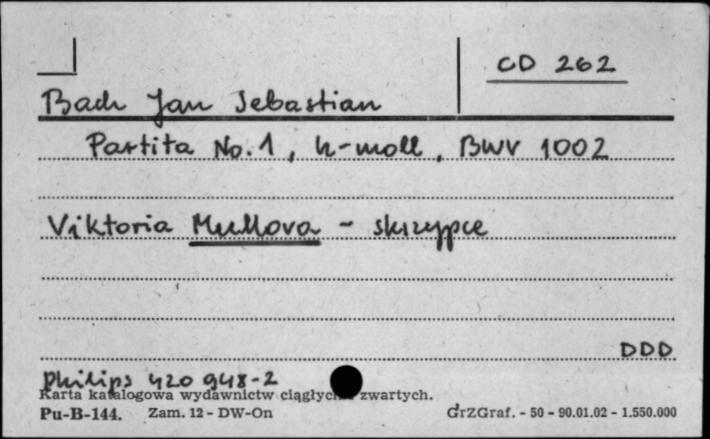 CD 262
Bach Jan Sebastian
Partita No. 1, h-moll, BWV 1002
Viktoria Mullova - skrzypce
DDD
Philips 420 948-2
Karta katalogowa wydawnictw ciągłych zwartych.
Pu-B-144. Zam. 12 - DW-On GrZGraf. - 50 - 90.01.02 - 1.550.000